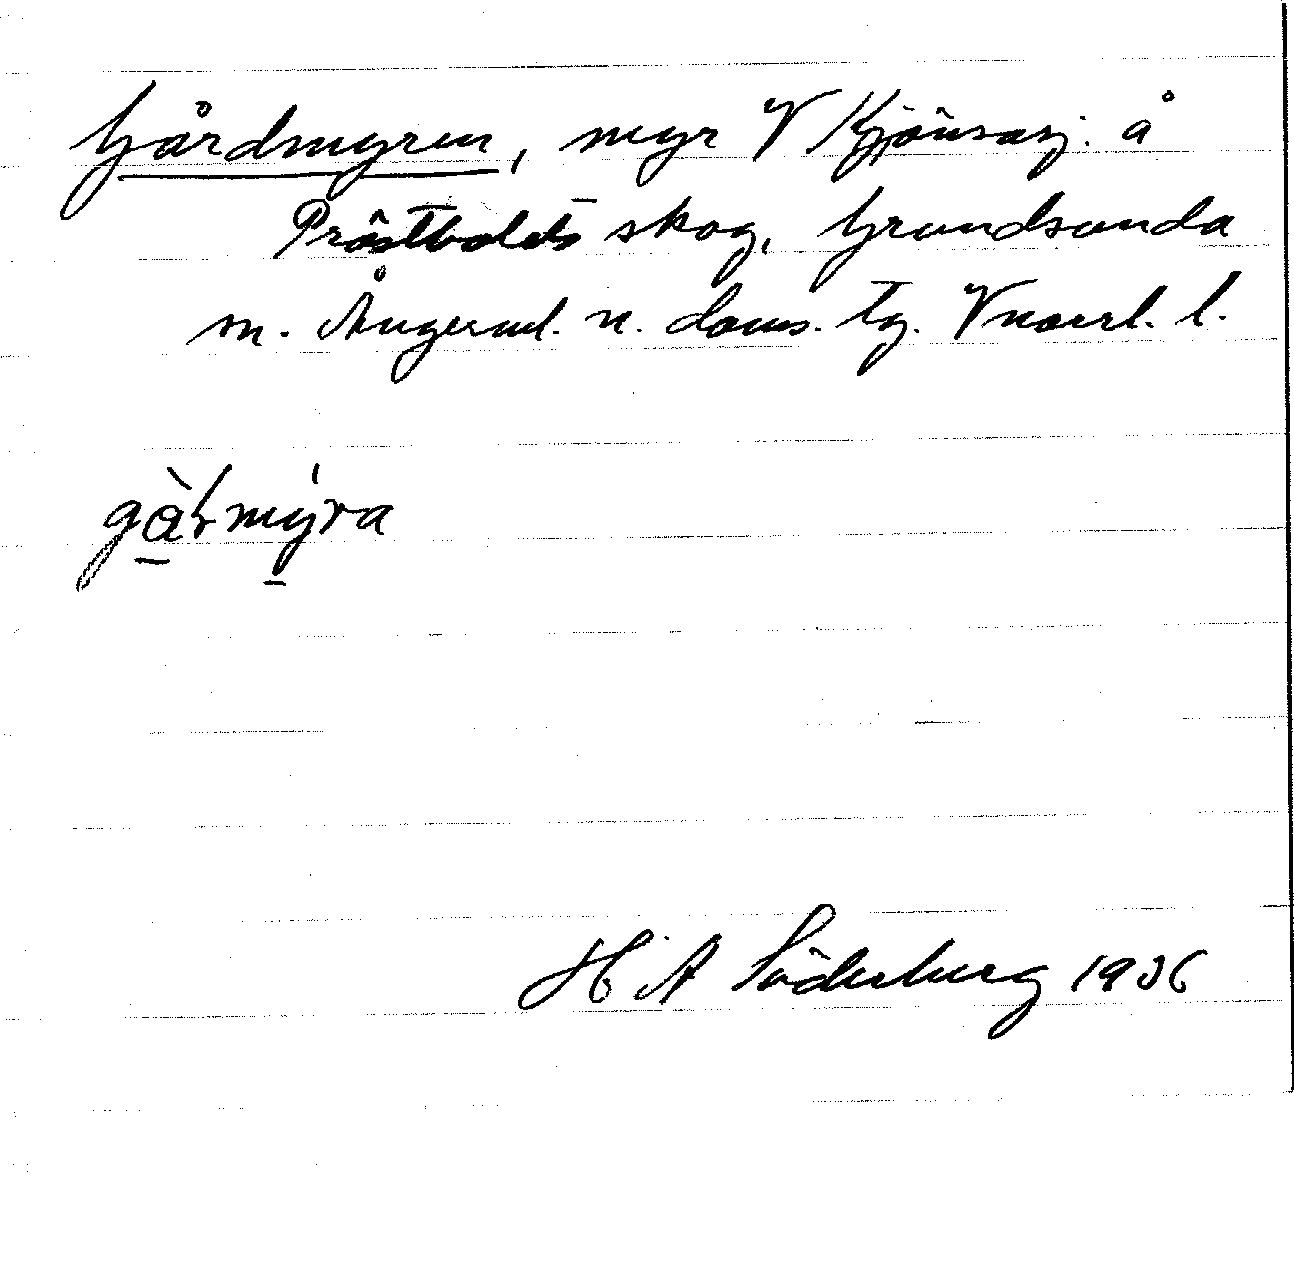 Gårdmyren, myr V Kjönsasj. å
Prästbolets skog, Grundsunda
sn. Ångerml. n. doms. tg. Vnorrl. l.
gà̱ɽmý̱ra
H A Söderberg 1936